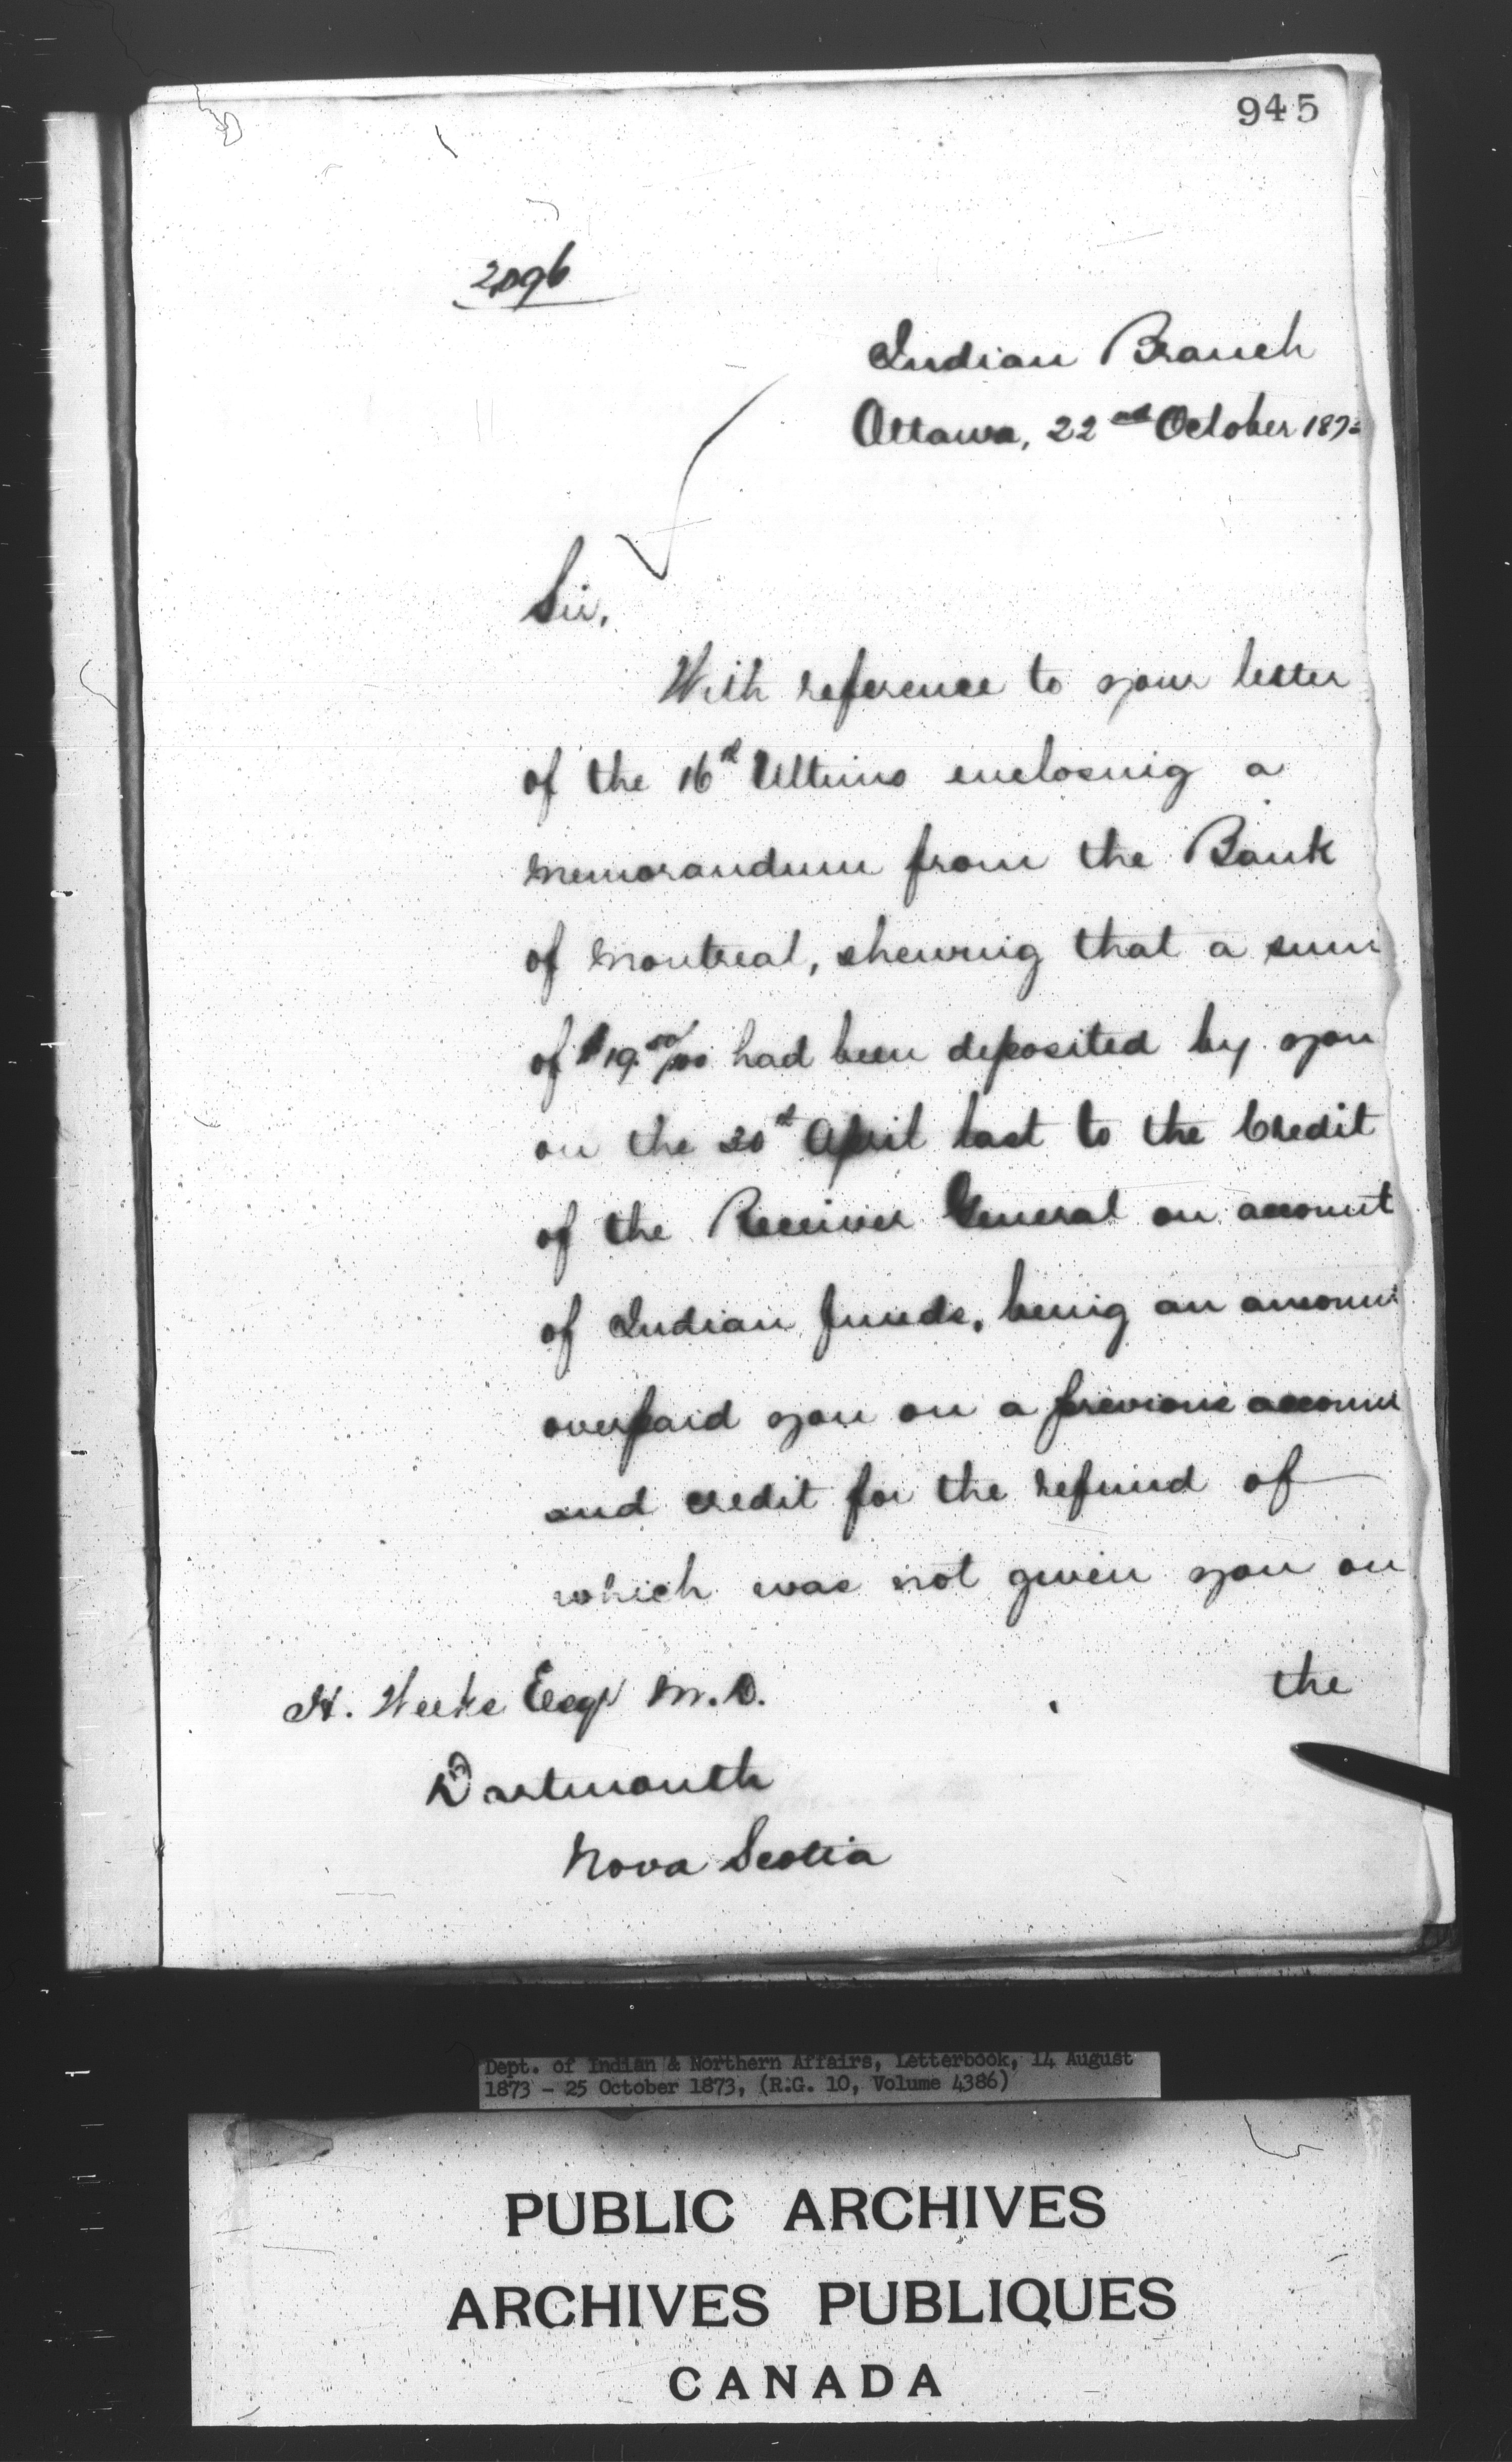 945
2096
Indian Branch
Ottawa, 22nd October 1873
Sir,
With reference to your letter
of the 16th Ultimo enclosing a
memorandum from the Bank
of Montreal, shewing that a sum
of $19. 50/100 had been deposited by you
on the 30th April last to the Credit
of the Receiver General on account
of Indian funds, being an amount
overpaid you on a previous account
and credit for the refund of
which was not given you on
the
H. Weeks Esqr M.D.
Dartmouth
Nova Scotia
Dept. of Indian & Northern Affairs, Letterbook, 14 August
1873 - 25 October 1873, (R.G. 10, Volume 4386)
PUBLIC ARCHIVES
ARCHIVES PUBLIQUES
CANADA